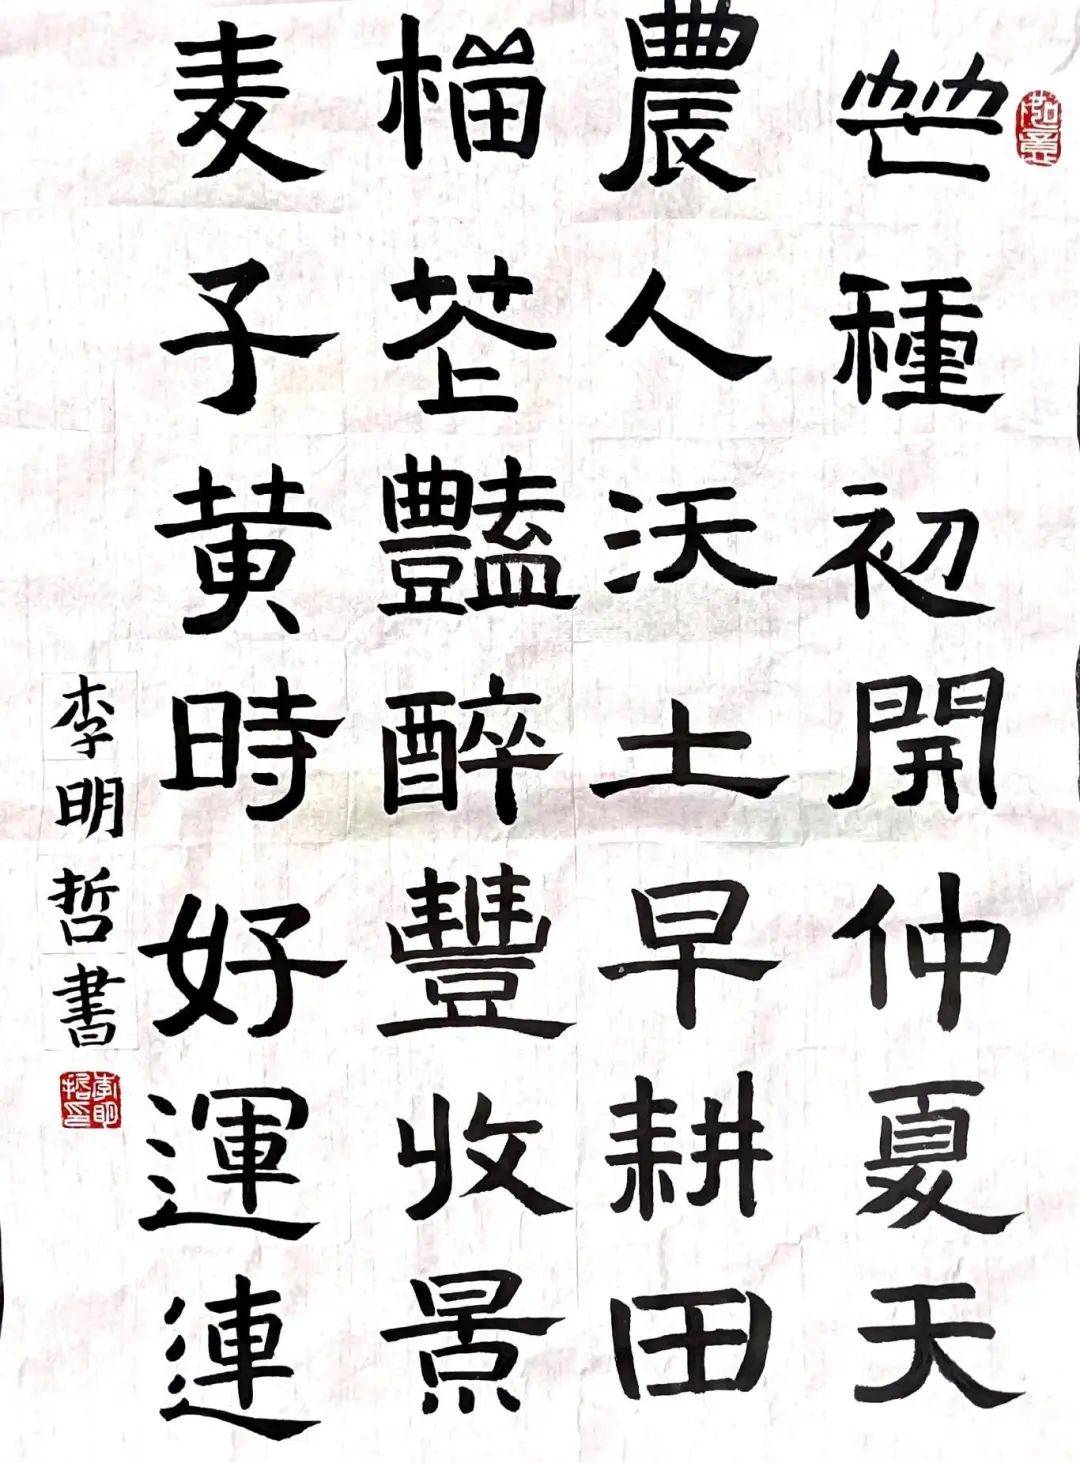 如意
芒種初開仲夏天
農人沃土早耕田
榴花豔醉豐收景
麦子黄時好運連
李明哲書
李明哲印